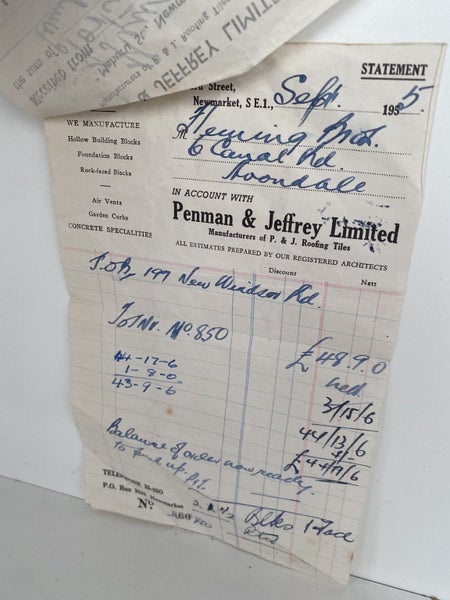 the sum of
Received from
Mahuru St., Newm
Manufacturers of P. & J. Roofing Tiles
& JEFFREY LIMITE
STATEMENT
Street,
Newmarket, S E.1., Sept. 1955.
M Fleming Bros.
6 Canal Rd.
Avondale
WE MANUFACTURE
Hollow Building Blocks
Foundation Blocks
Rock-faced Blocks
Air Vents
Garden Curbs
CONCRETE SPECIALITIES
IN ACCOUNT WITH
Penman & Jeffrey Limited
Manufacturers of P. & J. Roofing Tiles
ALL ESTIMATES PREPARED BY OUR REGISTERED ARCHITECTS
Discount Nett
Job, 199 New Windsor Rd.
To Inv. No. 850 £48.9.0
nett
3/15/6
44-17-6
1-8-0
43-9-6
44/13/6
Balance of order now ready
to pick up.
TELEPHONE
P.O. Box Newmarket
No
Blks 1 Face